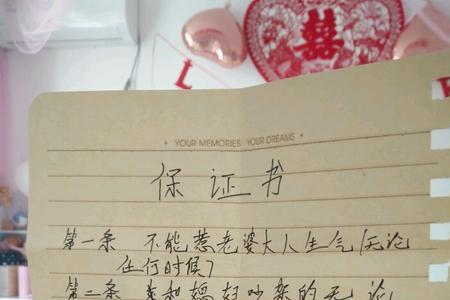 囍
L
YOUR MEMORIES YOUR DREAMS
保证书
第一条 不能惹老婆大人生气(无论
任何时候)
第二条 和 吵架的无论